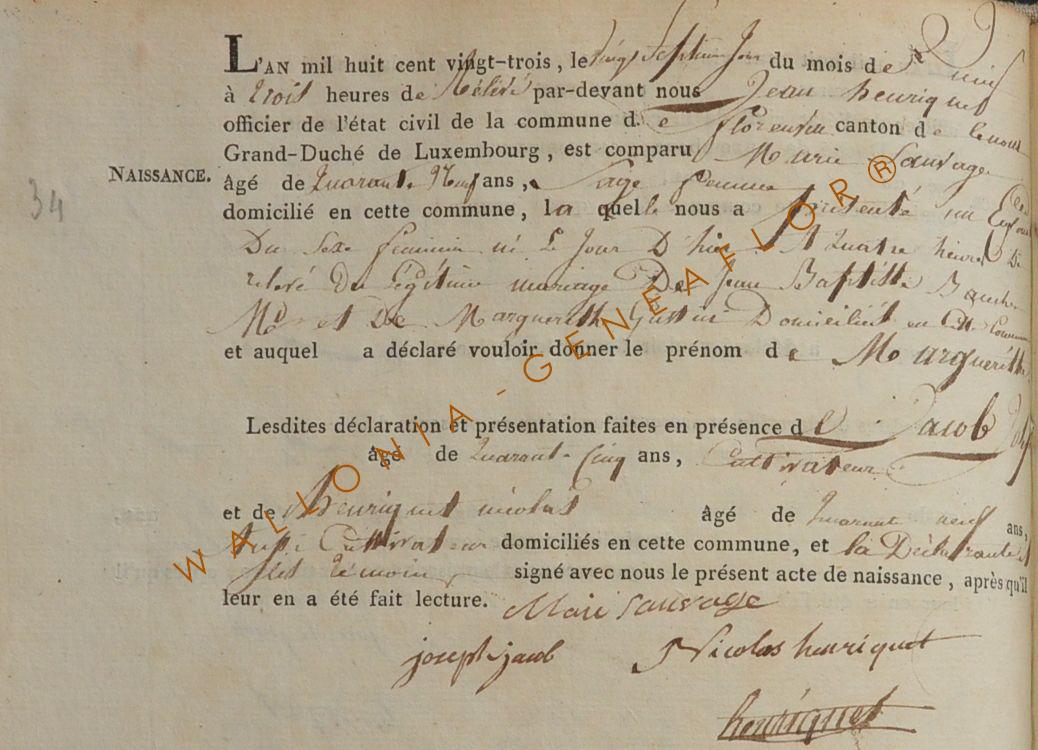 L'AN mil huit cent vingt-trois, le vingt Septieme Jour du mois de
à trois heures de Relévé par-devant nous Jean henriquet
officier de l'état civil de la commune de florenville canton de
Grand-Duché de Luxembourg, est comparu Marie Sauvage
NAISSANCE. âgé de Quarante Neuf ans, Sage femme
34
domicilié en cette commune, la quelle nous a présenté un Enfant
Du Sexe feminin né le Jour D'hier A Quatre heures De
relevé Du Légitime mariage De Jean Baptiste
et De Marguerithe Domiciliés en Cette Commune
et auquel a déclaré vouloir donner le prénom de Marguerithe
Lesdites déclaration et présentation faites en présence de Jacob
âgé de Quarante Cinq ans, Cultivateur
et de henriquet nicolas âgé de Quarante neuf ans,
Aussi Cultivateur domiciliés en cette commune, et la Déclarante et
les témoins signé avec nous le présent acte de naissance, après qu'il
leur en a été fait lecture.
Mari Sauvage
joseph jacob Nicolas henriquet
henriquet
WALLONIA-GENEAFLOR®